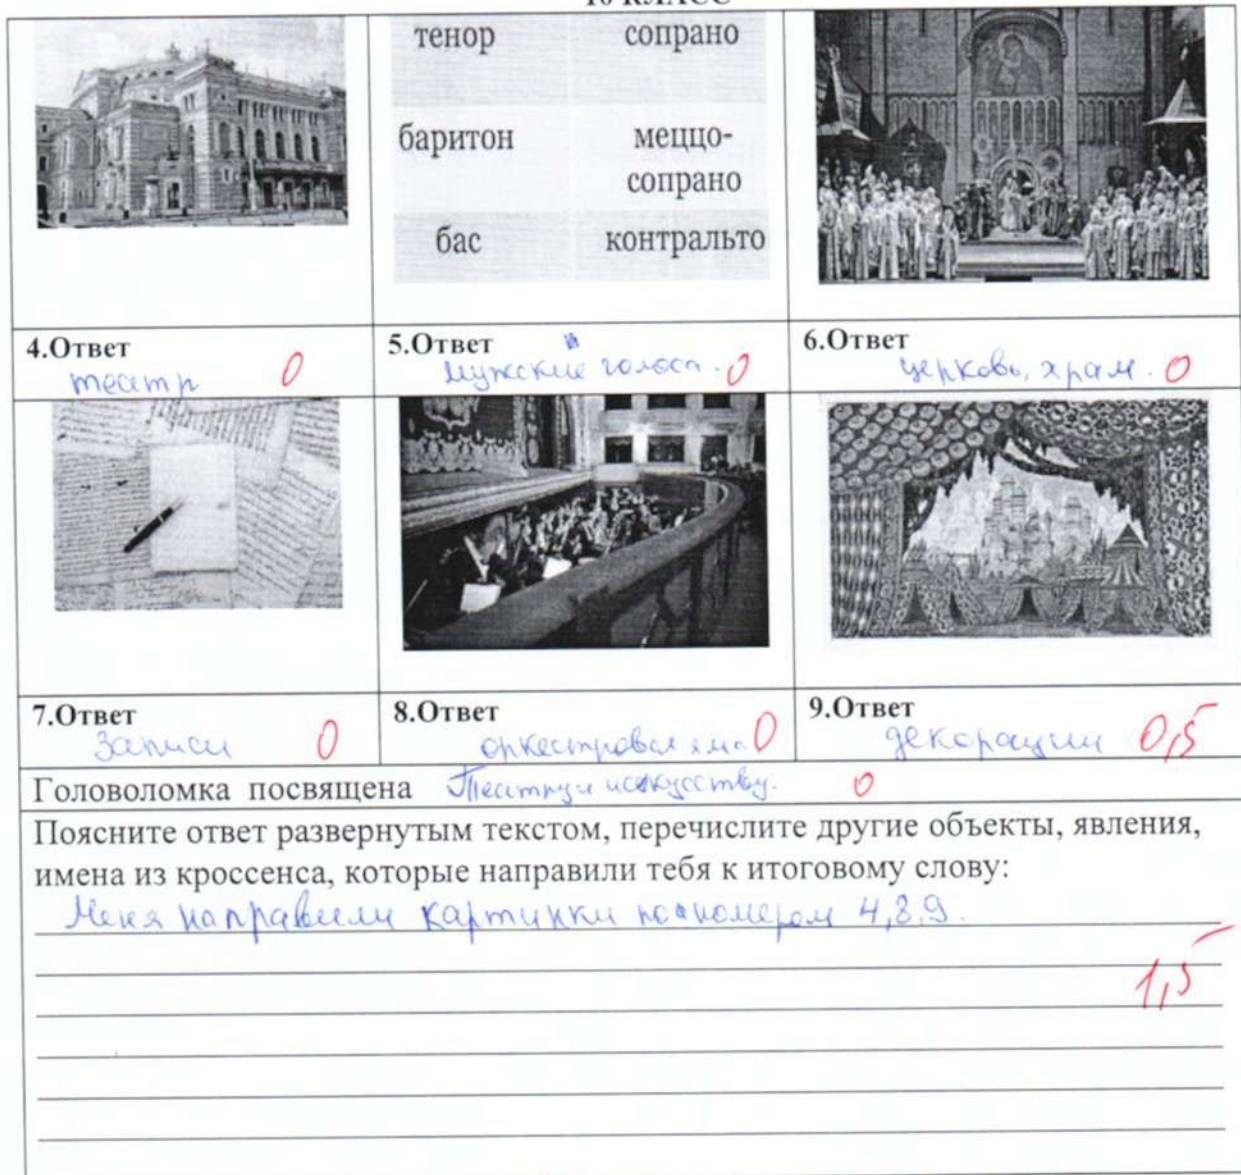 10 КЛАСС
тенор сопрано
баритон меццо-
сопрано
бас контральто
4.Ответ
театр 0
5.Ответ
Мужские голоса. 0
6.Ответ
церковь, храм. 0
7.Ответ
Записи 0
8.Ответ
оркестровая яма 0
9.Ответ
декорации 0,5
Головоломка посвящена Театру и искусству. 0
Поясните ответ развернутым текстом, перечислите другие объекты, явления,
имена из кроссенса, которые направили тебя к итоговому слову:
Меня направили картинки под номером 4,8,9.
1,5